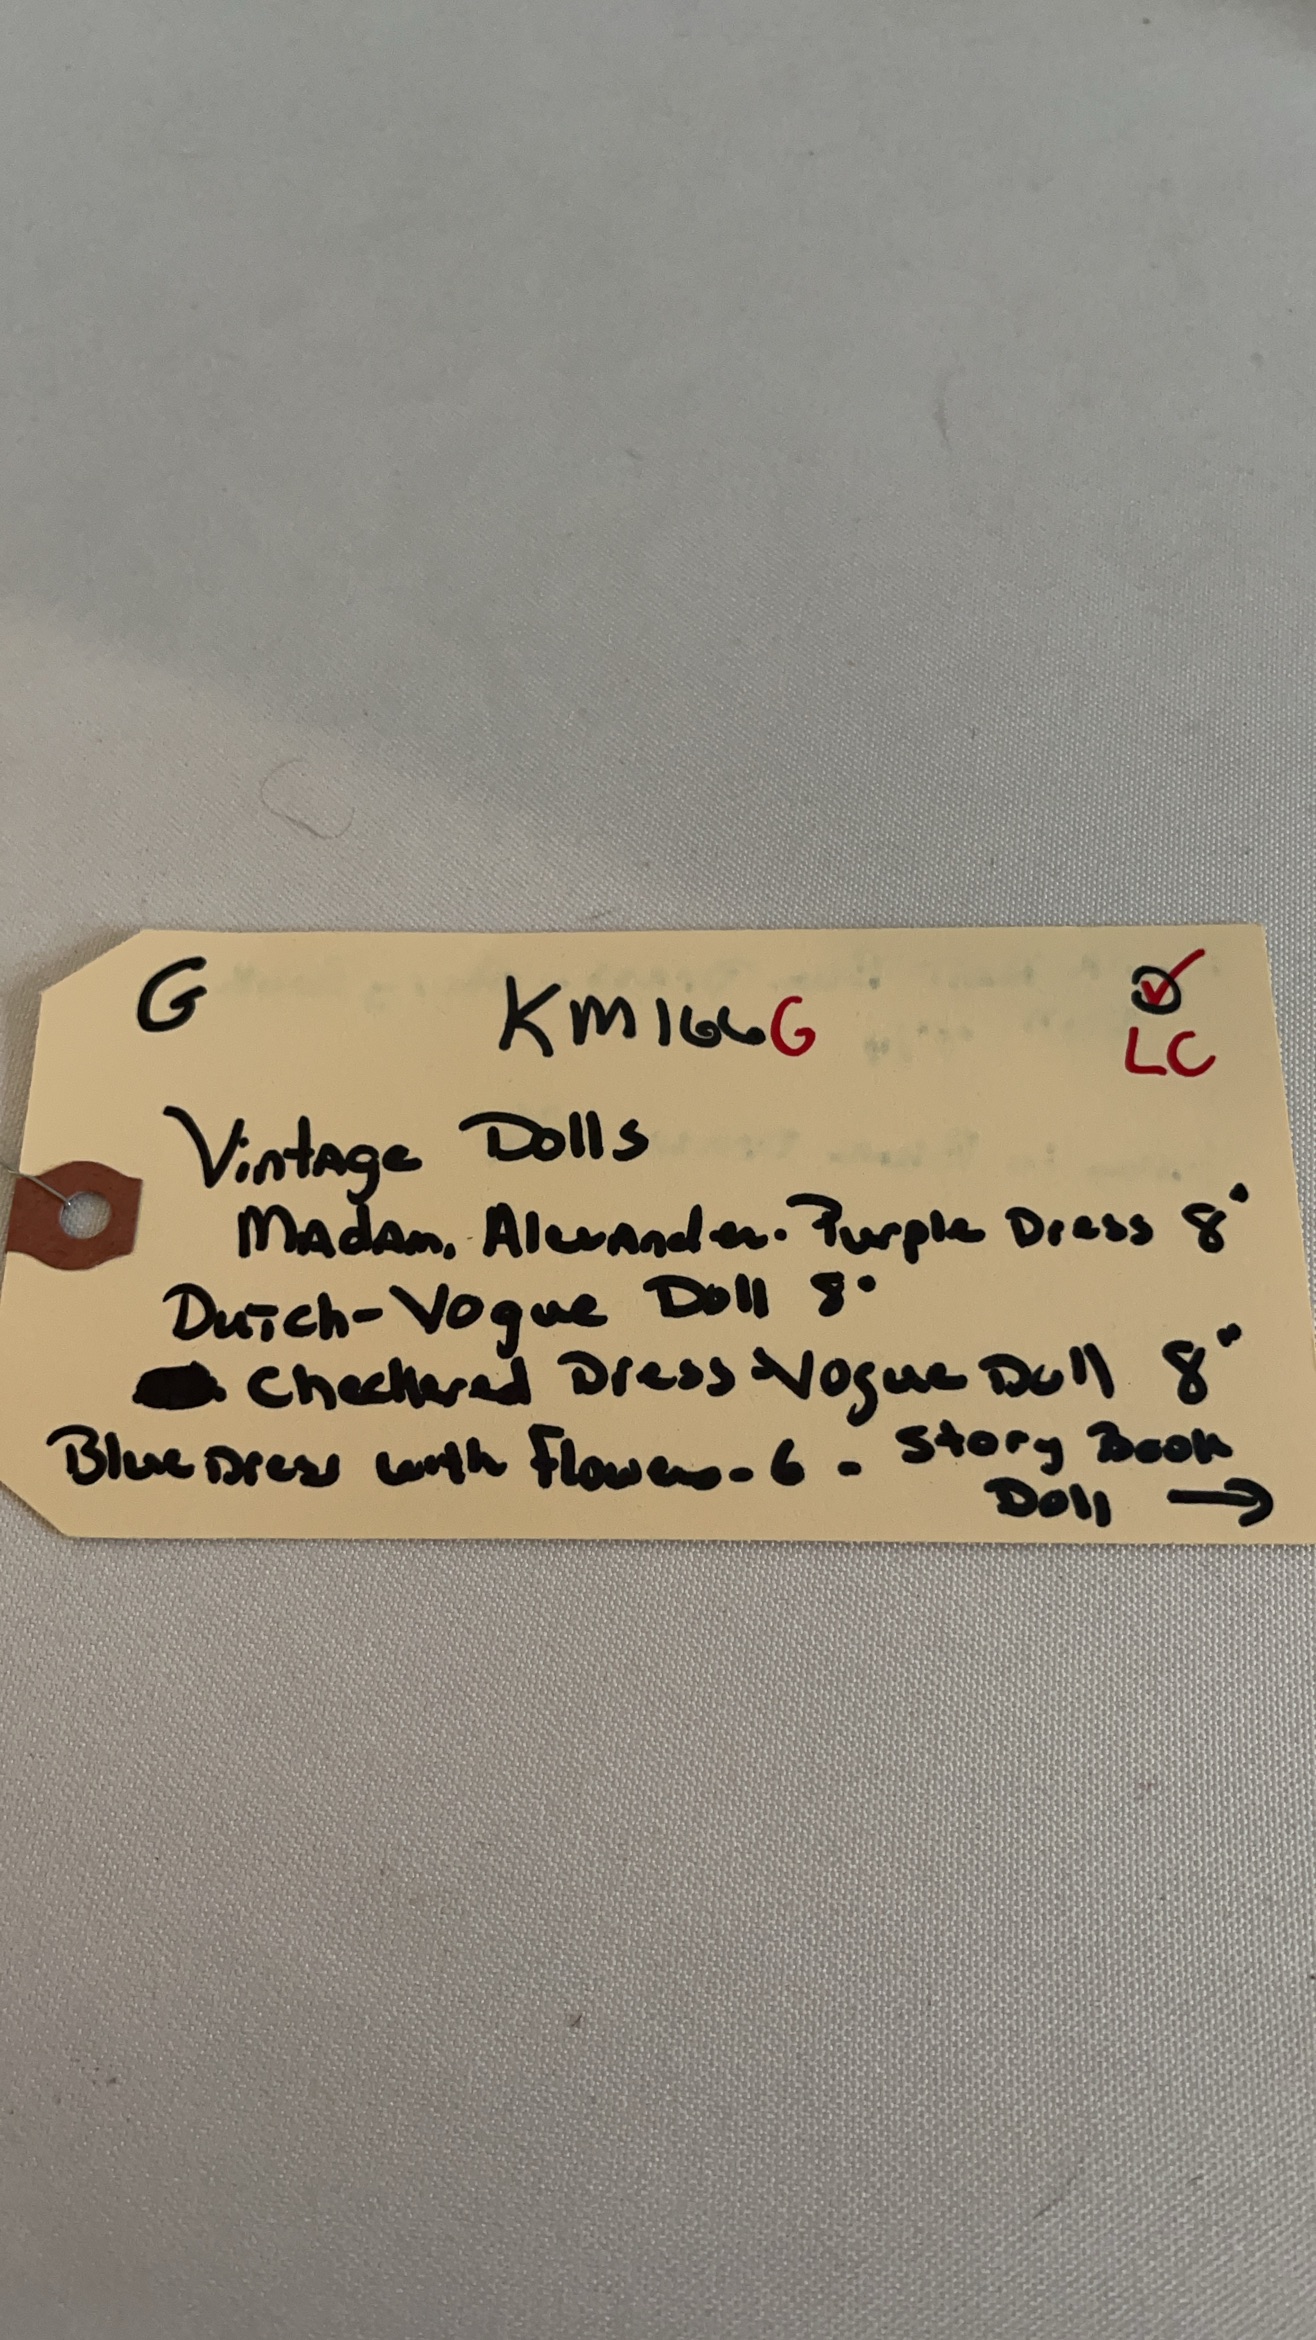 G KM166G
LC
Vintage Dolls
Madam. Alexander. Purple Dress 8"
Dutch-Vogue Doll 8"
Checkered Dress Vogue Doll 8"
Blue Dress with Flowers - 6 - Story Book
Doll →